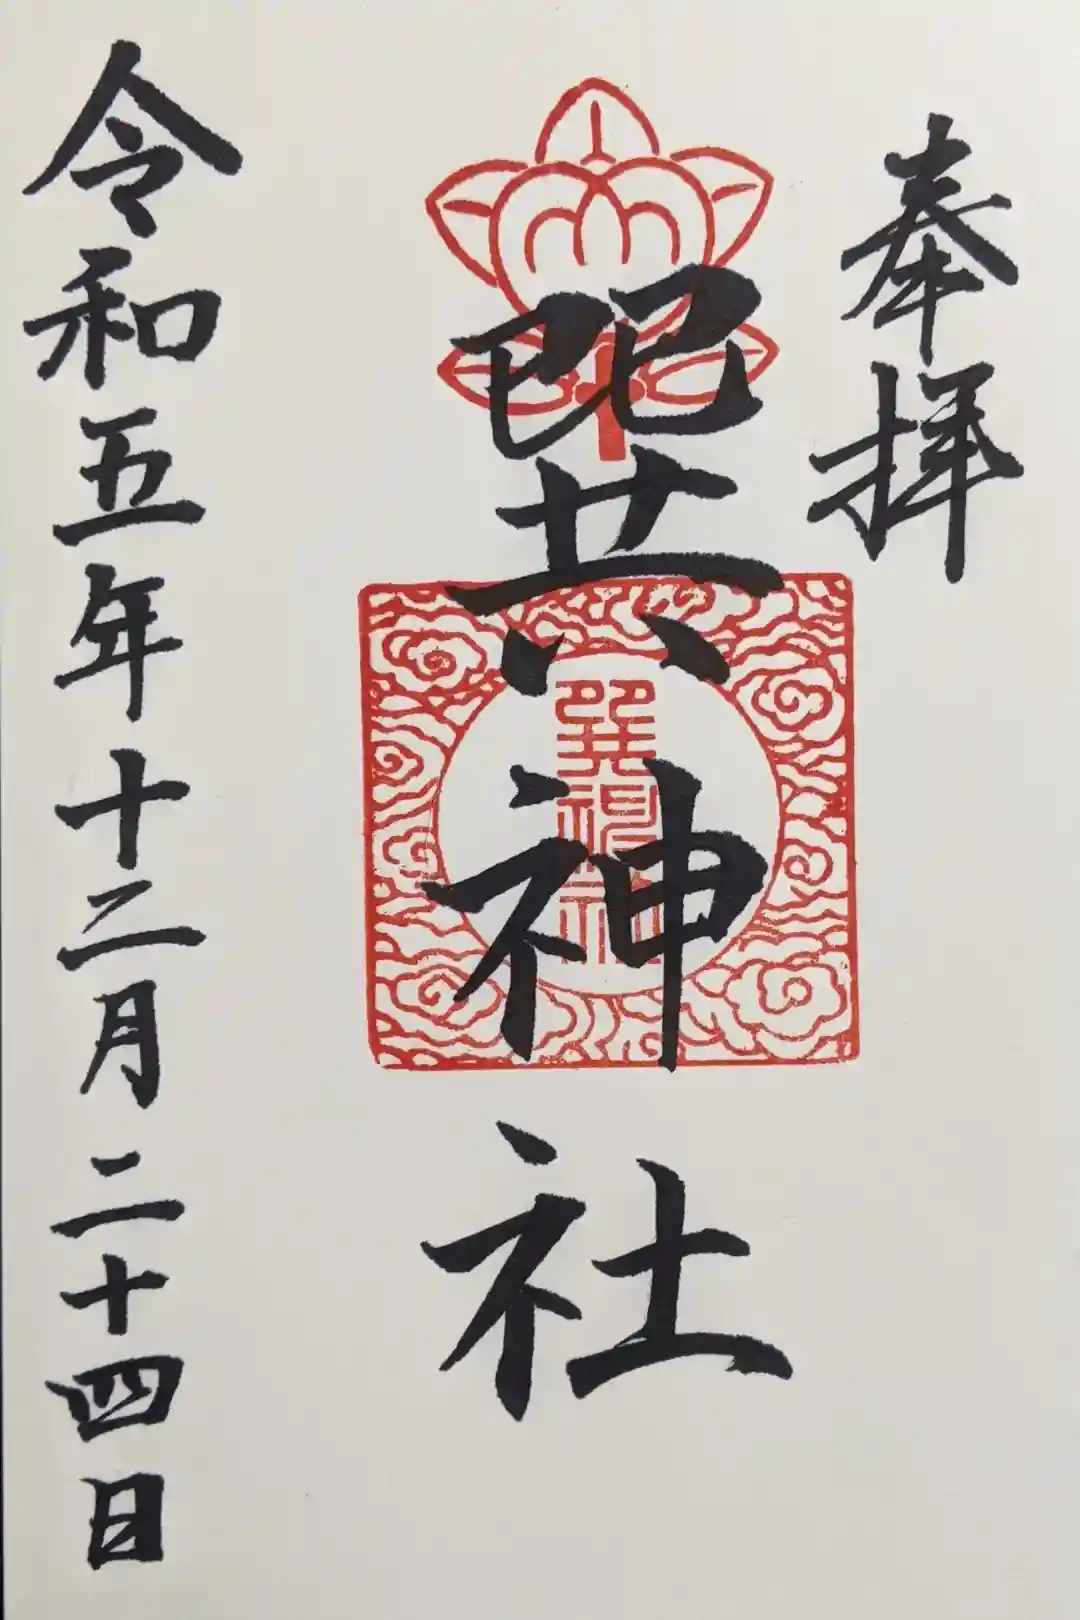 奉拝
巽神社
巽神社
令和五年十二月二十四日